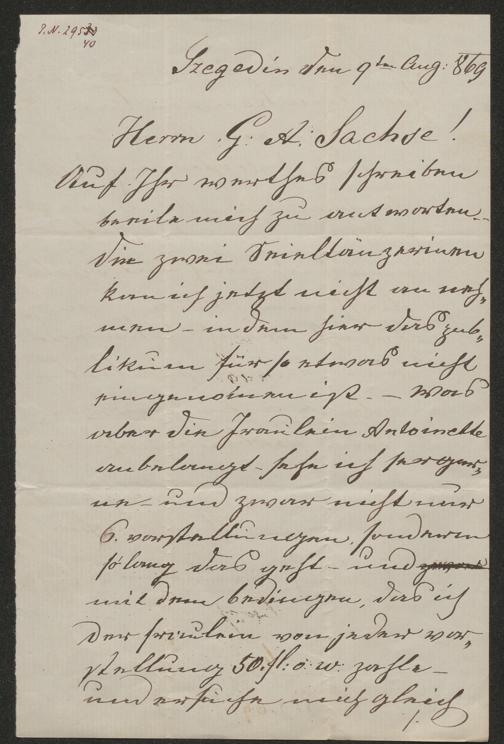 I.N. 2953
40
Szegedin den 9ten Aug: 869
Herrn G: A: Sachse!
Auf Ihr werthes schreiben
beeile mich zu antworten –
die zwei Seieltänzerinen
kan ich jetzt nicht an neh„
men – in dem hier das pub„
likum für so etwas nicht
eingenomen ist. – Was
aber die Fraulein Antoinette
anbelangt – sehe ich ser ger„
ne – und zwar nicht nur
6. vorstellungen, sondern
so lang das geht – und
mit dem bedingen, das ich
der fraulein von jeder vor„
stellung 50. fl: ö: w: zahle –
und ersuche mich gleich